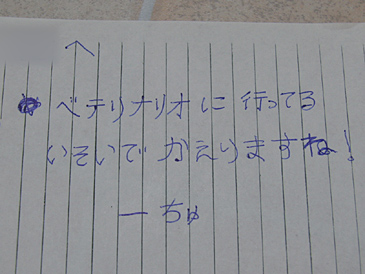 ベテリナリオに行ってる
いそいでかえりますね!
ーちゅ